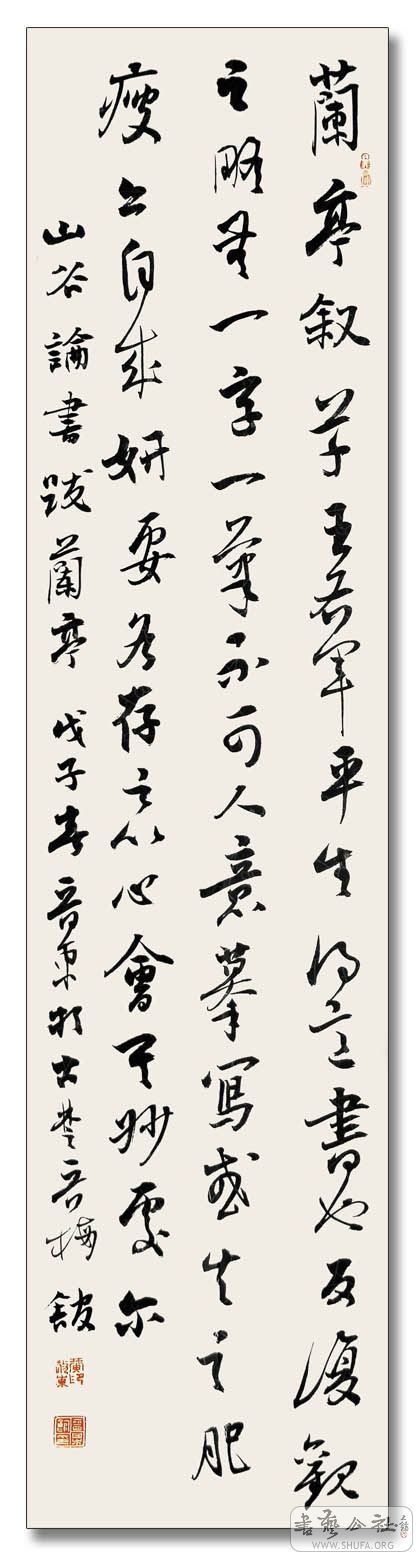 蘭亭叙草王右軍平生得意書也反復觀
之略無一字一筆不可人意摹寫或失之肥
瘦亦自成妍要各存之以心會其妙處尔
山谷論書跋蘭亭戊子春東於古楚梅館
書藝公社
WWW.SHUFA.ORG